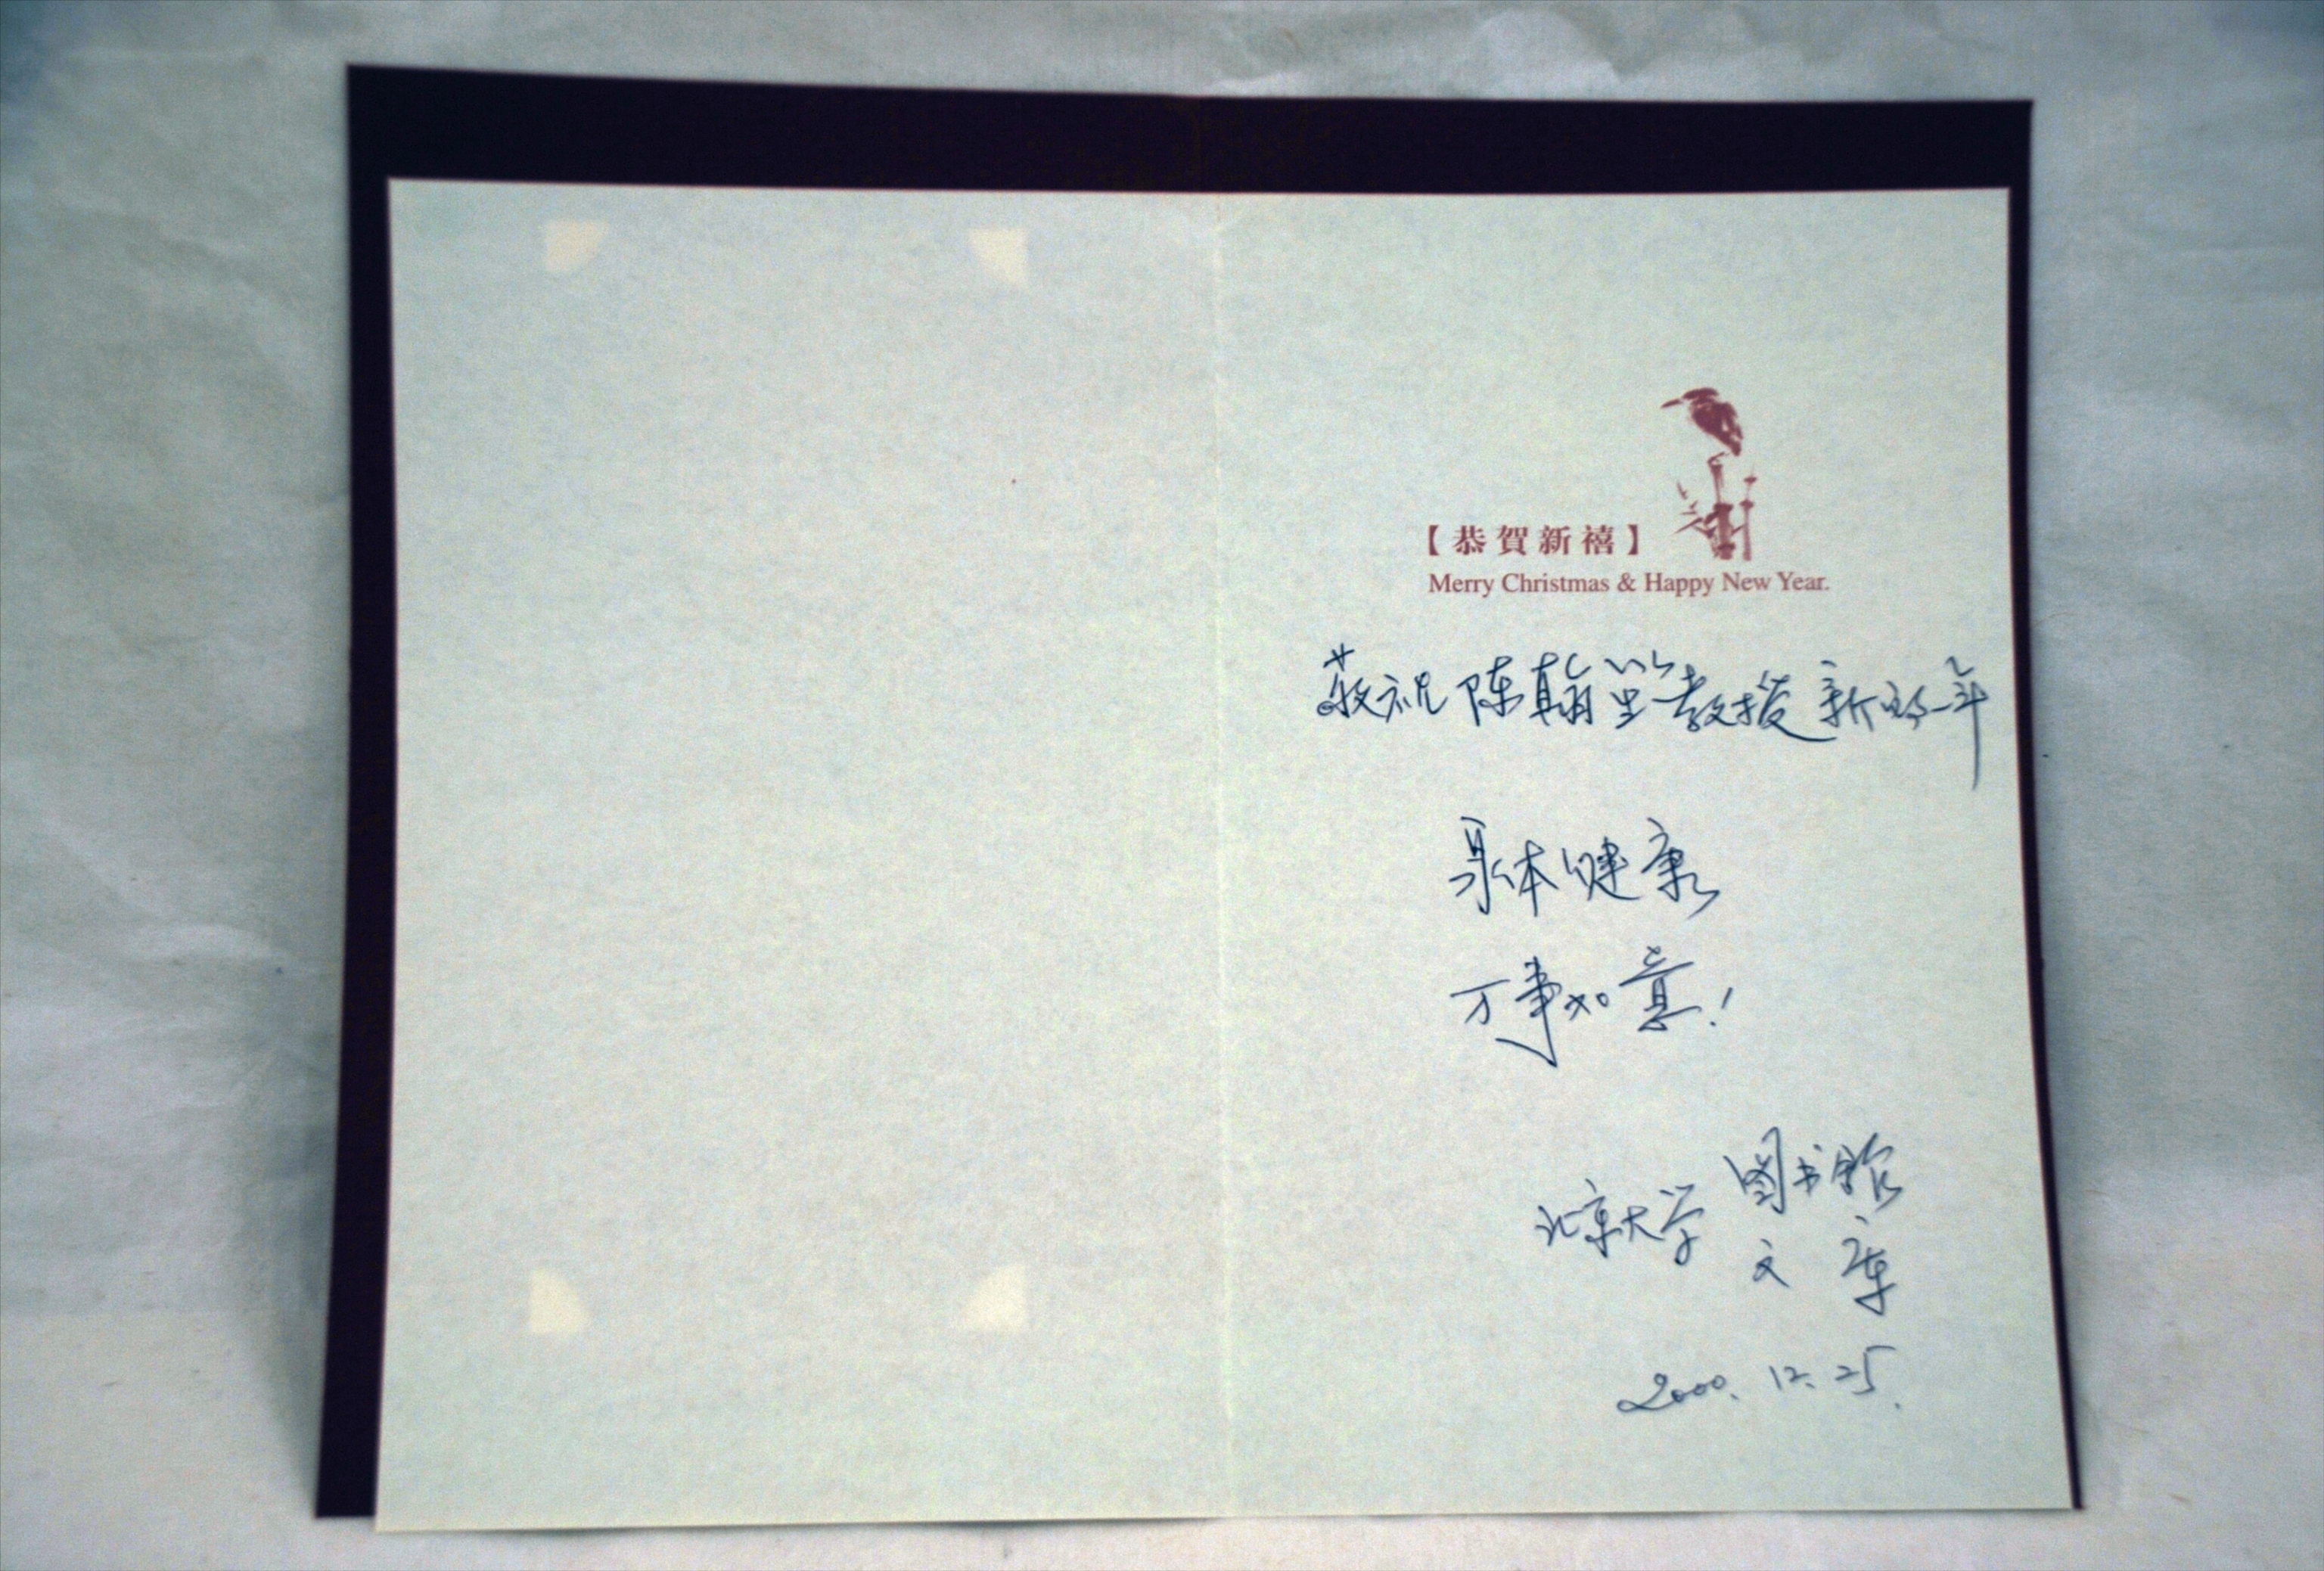 【恭賀新禧】
Merry Christmas & Happy New Year.
敬祝陈翰笙教授新的一年
身体健康
万事如意!
北京大学图书馆
文库
2000.12.25.